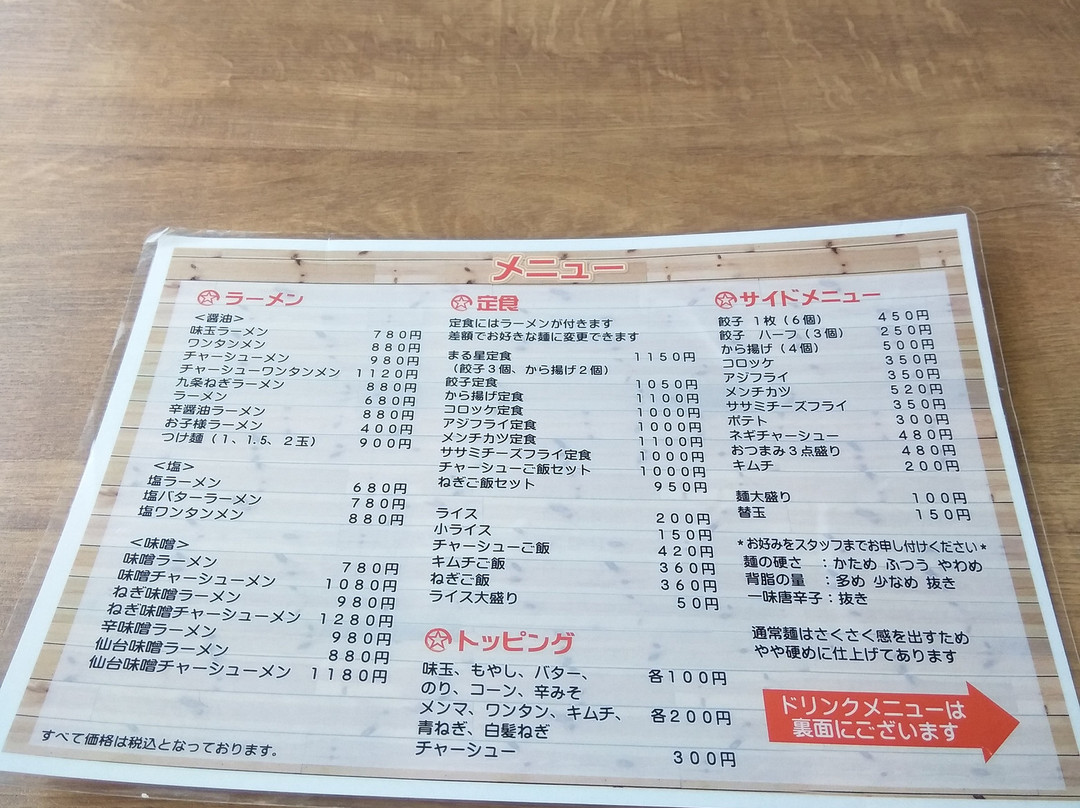 メニュー
ラーメン
<醤油>
味玉ラーメン 780円
ワンタンメン 880円
チャーシューメン 980円
チャーシューワンタンメン 1120円
九条ねぎラーメン 880円
ラーメン 680円
辛醤油ラーメン 880円
お子様ラーメン 400円
つけ麺(1、1.5、2玉) 900円
<塩>
塩ラーメン 680円
塩バターラーメン 780円
塩ワンタンメン 880円
<味噌>
味噌ラーメン 780円
味噌チャーシューメン 1080円
ねぎ味噌ラーメン 980円
ねぎ味噌チャーシューメン 1280円
辛味噌ラーメン 980円
仙台味噌ラーメン 880円
仙台味噌チャーシューメン 1180円
すべて価格は税込となっております。
定食
定食にはラーメンが付きます
差額でお好きな麺に変更できます
まる星定食 1150円
(餃子3個、から揚げ2個)
餃子定食 1050円
から揚げ定食 1100円
コロッケ定食 1000円
アジフライ定食 1000円
メンチカツ定食 1100円
ササミチーズフライ定食 1000円
チャーシューご飯セット 1000円
ねぎご飯セット 950円
ライス 200円
小ライス 150円
チャーシューご飯 420円
キムチご飯 360円
ねぎご飯 360円
ライス大盛り 50円
トッピング
味玉、もやし、バター、 各100円
のり、コーン、辛みそ
メンマ、ワンタン、キムチ、 各200円
青ねぎ、白髪ねぎ
チャーシュー 300円
サイドメニュー
餃子 1枚(6個) 450円
餃子 ハーフ(3個) 250円
から揚げ(4個) 500円
コロッケ 350円
アジフライ 350円
メンチカツ 520円
ササミチーズフライ 350円
ポテト 300円
ネギチャーシュー 480円
おつまみ3点盛り 480円
キムチ 200円
麺大盛り 100円
替玉 150円
*お好みをスタッフまでお申し付けください*
麺の硬さ :かため ふつう やわめ
背脂の量 :多め 少なめ 抜き
一味唐辛子:抜き
通常麺はさくさく感を出すため
やや硬めに仕上げてあります
ドリンクメニューは
裏面にございます